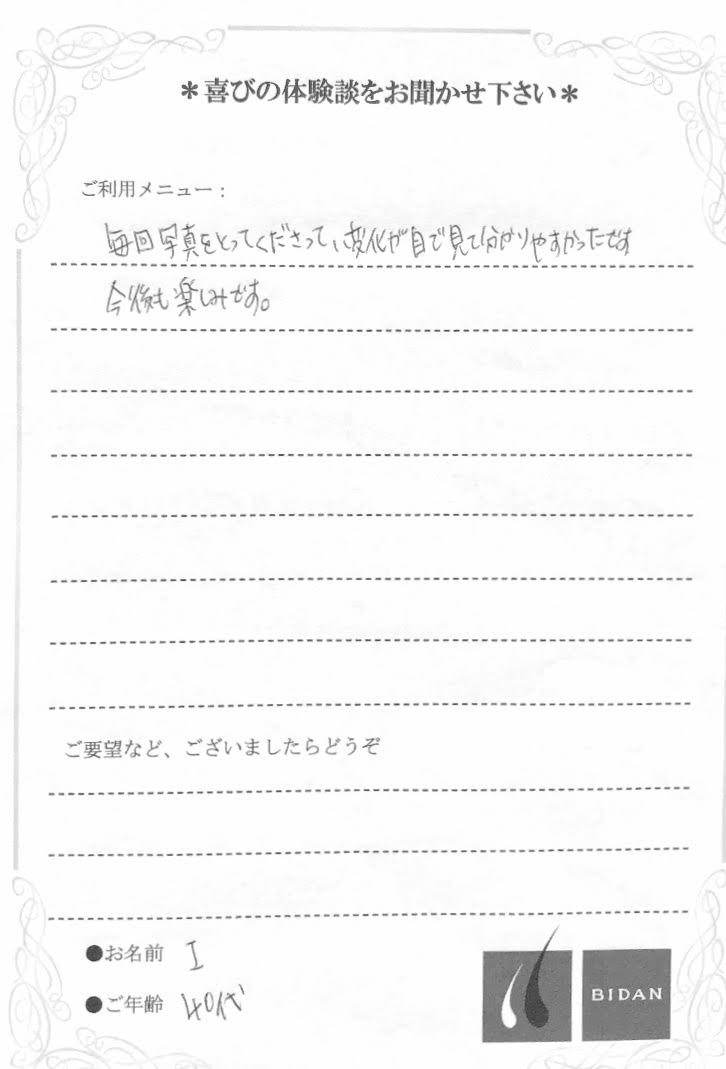 ＊喜びの体験談をお聞かせ下さい＊
ご利用メニュー：
毎回写真をとってくださって、変化が目で見て分かりやすかったです
今後も楽しみです。
ご要望など、ございましたらどうぞ
●お名前 I
●ご年齢 40代
BIDAN